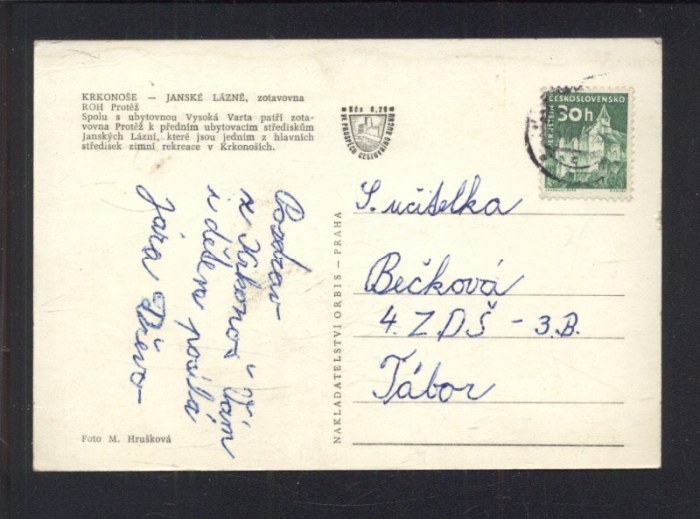 KRKONOŠE — JANSKÉ LÁZNĚ, zotavovna
ROH Protěž
Spolu s ubytovnou Vysoká Varta patří zota-
vovna Protěž k předním ubytovacím střediskům
Janských Lázní, které jsou jedním z hlavních
středisek zimní rekreace v Krkonoších.
Pozdrav
z Krkonoš Vám
i dětem posílá
Jára
Foto M. Hrušková
NAKLADATELSTVÍ ORBIS — PRAHA
Kčs 0,20
VE PROSPĚCH CESTOVNÍHO RUCHU
ČESKOSLOVENSKO
30h
S. učitelka
Bečková
4. ZDŠ - 3.B.
Tábor